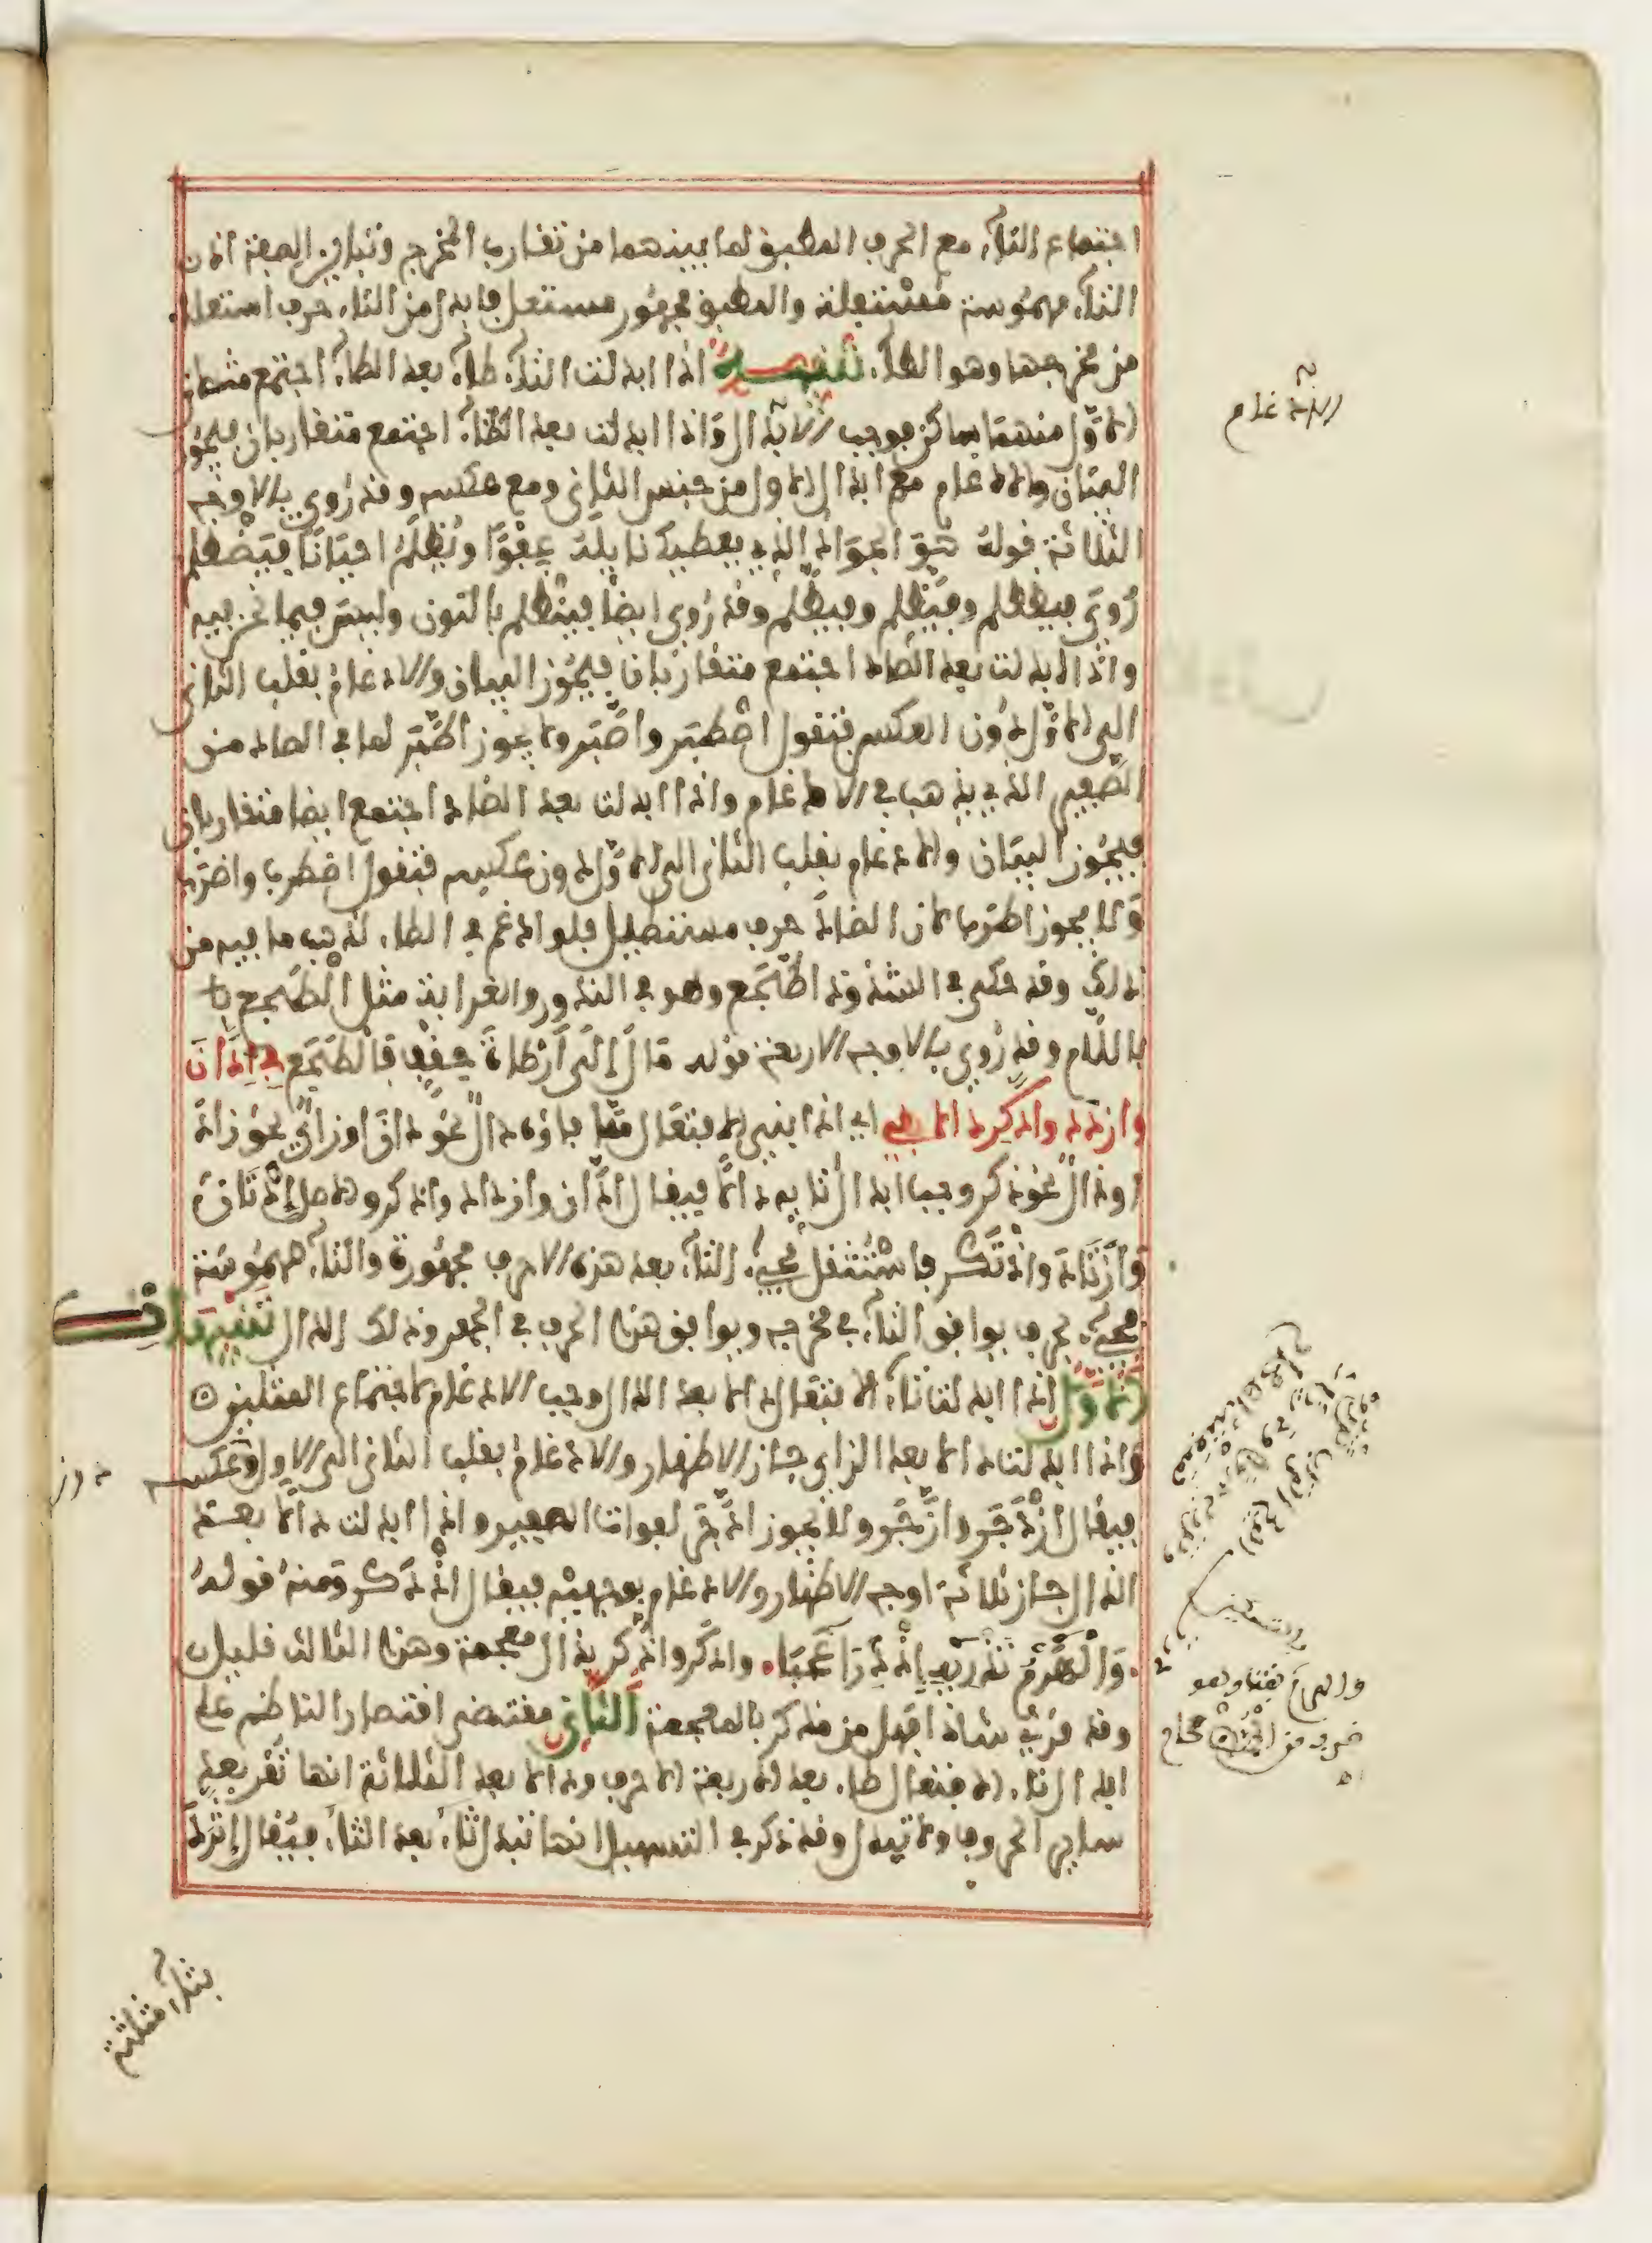 اجتماع التآء مع الحرف المطبق لما بينهما من تقارب المخرج وتباين الصفة اذ ان
التآء مهموسة مستفلة والمطبق مجهور مستعل فابدل من التاء حرف استعلاء
من مخرجها وهو الطآء تنبيه اذا ابدلت التآء طآء بعد الطآء اجتمع مثلان
الاول منهما ساكن فوجب الادغام واذا ابدلت بعد الظآء اجتمع متقاربان فيجوز
البيان والادغام مع ابدال الاول من جنس الثاني ومع عكسه وقد روي بالاوجه
الثلاثة قوله هو الجواد الذي يعطيك نايله عفوا ويظلم احيانا فيظطلم
روي فيظطلم وفيظلم وفيطلم وقد روي ايضا فينظلم بالنون وليس مما نحن فيه
واذا ابدلت بعد الصاد اجتمع متقاربان فيجوز البيان والادغام بقلب الثاني
الى الاول دون العكس فتقول اصطبر واصبر ولا يجوز اطبر لما في الصاد من
الصفير الذي يذهب في الادغام واذا ابدلت بعد الضاد اجتمع ايضا متقاربان
فيجوز البيان والادغام بقلب الثاني الى الاول دون عكسه فتقول اضطرب واضرب
ولا يجوز اطرب لان الضاد حرف مستطيل فلو ادغم في الطاء لذهب ما فيه من
ذلك وقد حكي في الشذوذ اطجع وهو في الندور والغرابة مثل الطجع
باللام وقد روي بالاوجه الاربعة قوله مال الى ارطاة حقف فالطجع في ادان
وازدد وادكر دالا بقي اي اذا بني الافتعال مما فاؤه دال نحو دان او زاي نحو زاد
او ذال نحو ذكر وجب ابدال تايه دالا فيقال ادان وازداد واذكر والاصل ادتان
وازتاد واذتكر فاستثقل مجيء التاء بعد هذه الاحرف مجهورة والتاء مهموسة
فجيء بحرف يوافق التآء في مخرجه ويوافق هذه الحرف في الجهر وذلك الدال تنبيهات
الاول اذا ابدلت تآء الافتعال دالا بعد الدال وجب الادغام لاجتماع المثلين
واذا ابدلت دالا بعد الزاي جاز الاظهار والادغام بقلب الثاني الى الاول وعكسه
فيقال ازدجر وازجر ولا يجوز ادجر لفوات الصفير واذا ابدلت دالا بعد
الذال جاز ثلاثة اوجه الاظهار والادغام بوجهيه فيقال اذدكر ومنه قوله
والهرم تذريه اذدراء عجبا وادكر واذكر بذال معجمة وهذا الثالث قليل
وقد قرئ شاذا فهل من مذكر بالمعجمة الثاني مقتضى اقتصار الناظم على
ابدال تاء الافتعال طاء بعد الاربعة الاحرف ودالا بعد الثلاثة انها تقر بعد
ساير الحروف ولا تبدل وقد ذكر في التسهيل انها تبدل ثاء بعد الثاء فيقال اثرد
الادغام
دون
بثاء مثلثة